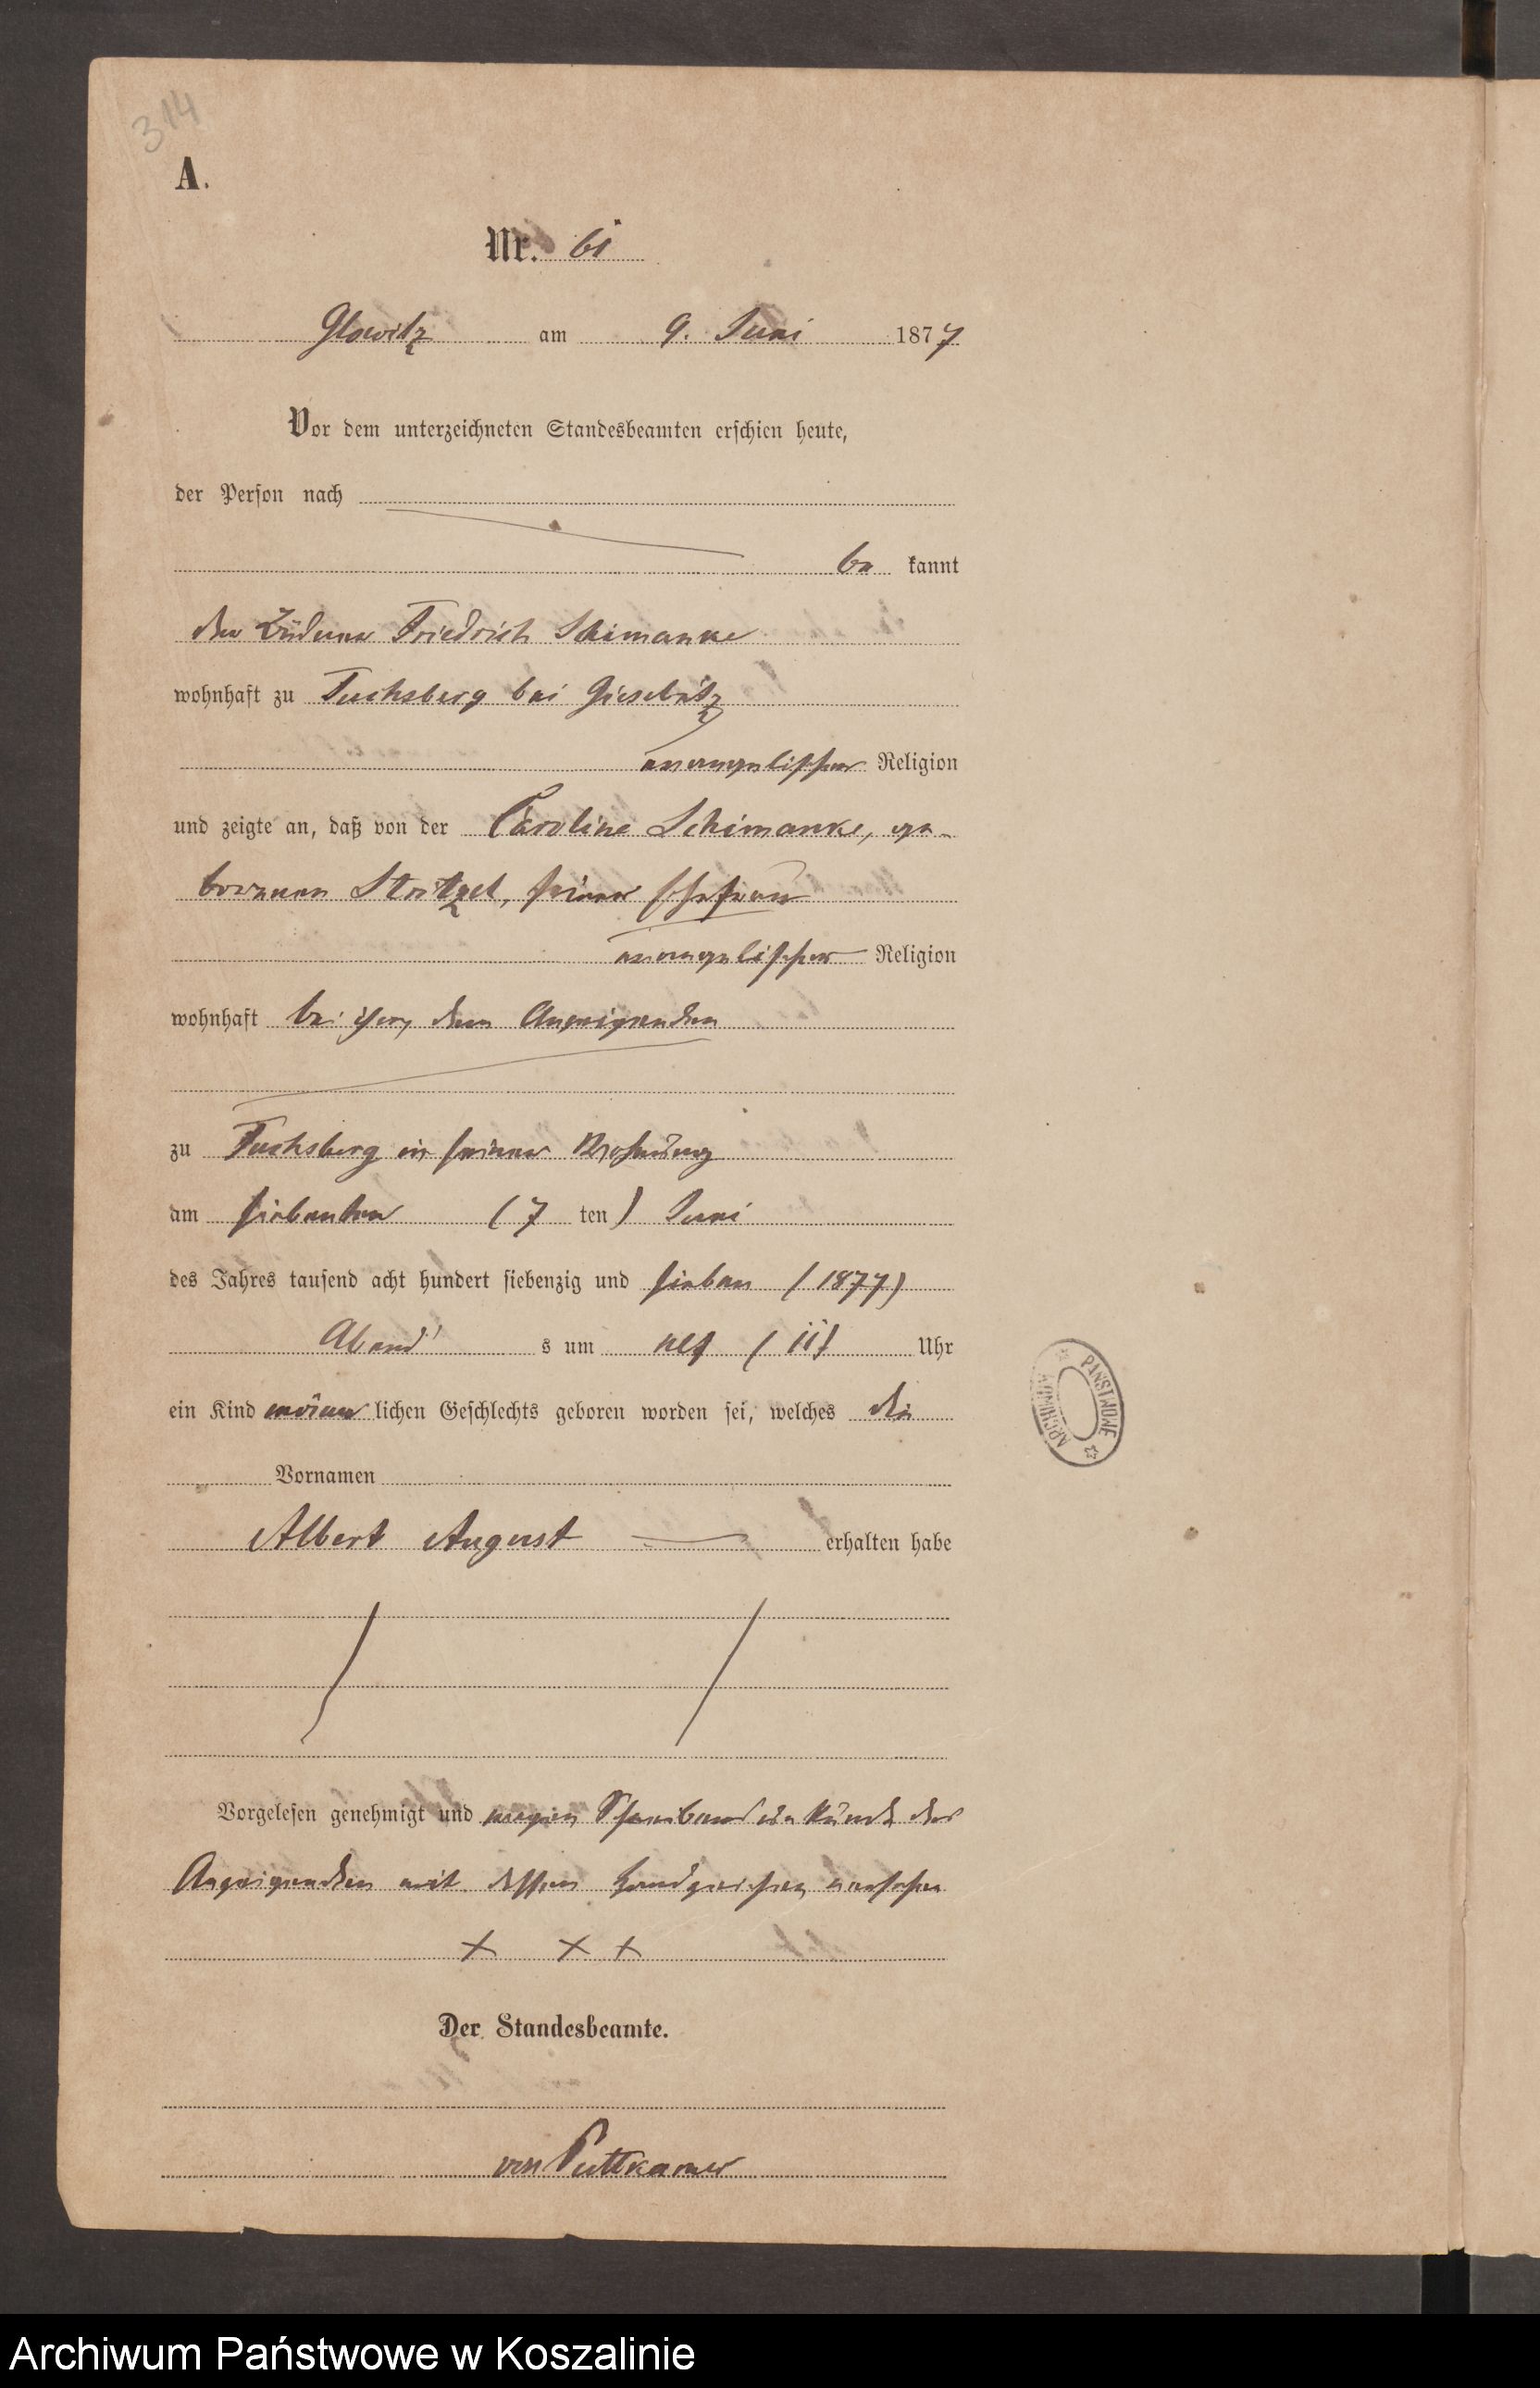 314
A.
Nr. 61
Glowitz am 9. Juni 1877
Vor dem unterzeichneten Standesbeamten erschien heute,
der Person nach
be kannt
der Büdner Friedrich Schimanke
wohnhaft zu Fuchsberg bei Giesebitz
evangelischer Religion
und zeigte an, daß von der Caroline Schimanke, ge-
borenen Stritzel, seiner Ehefrau
evangelischer Religion
wohnhaft bei ihm, dem Anzeigenden
zu Fuchsberg in seiner Wohnung
am siebenten (7 ten) Juni
des Jahres tausend acht hundert siebenzig und sieben (1877)
Abend s um elf (11) Uhr
ein Kind männ lichen Geschlechts geboren worden sei, welches die
Vornamen
Albert August erhalten habe
Vorgelesen genehmigt und wegen des
Anzeigenden mit dessen Handzeichen versehen
+ + +
Der Standesbeamte.
von Puttkamer
PAŃSTWOWE ARCHIWUM
Archiwum Państwowe w Koszalinie